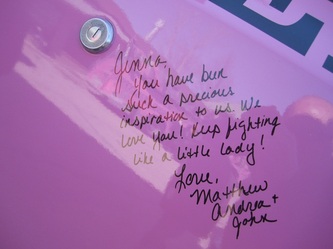 Jenna,
You have been
such a precious
inspiration to us. We
love you! Keep fighting
like a little lady!
Love,
Matthew
Andrea +
John